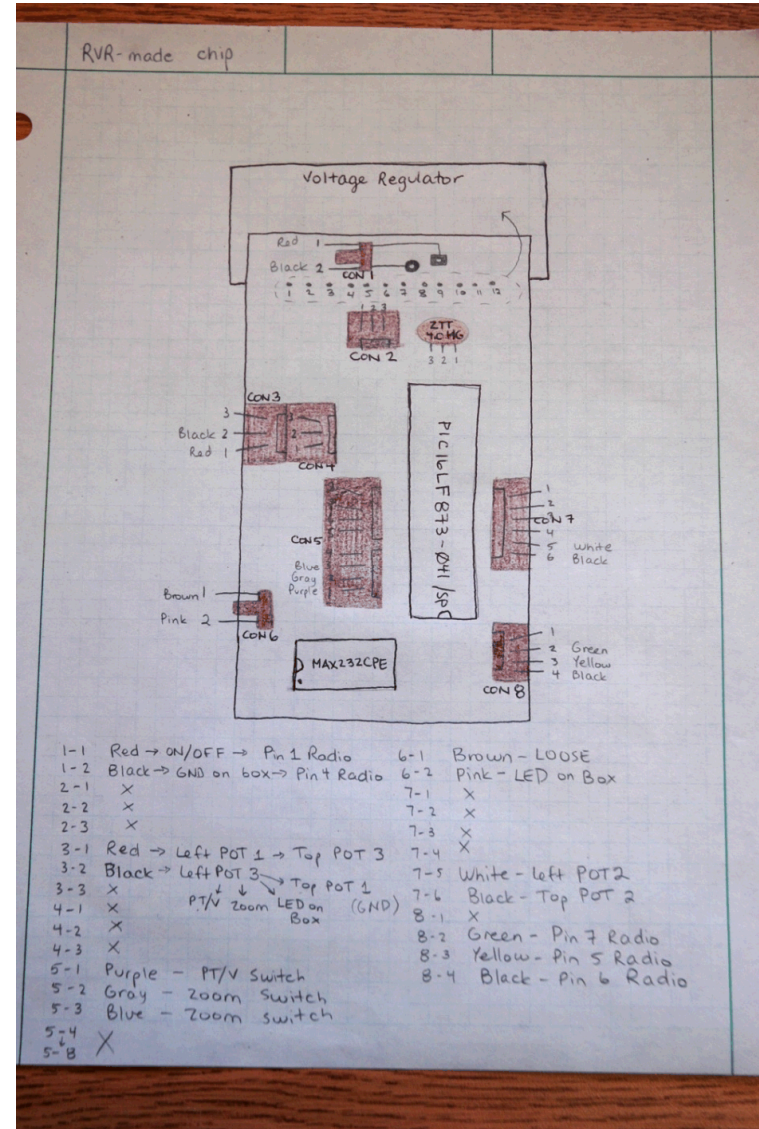 RVR-made chip
Voltage Regulator
Red 1
Black 2
CON 1
1 2 3 4 5 6 7 8 9 10 11 12
1 2 3
CON 2
ZTT
4.0 MG
3 2 1
CON3
3
Black 2
Red 1
3
2
1
CON4
PIC16LF873-04I/SP
CON5
Blue
Gray
Purple
1
2
3
CON 7
4
5 White
6 Black
Brown 1
Pink 2
CON6
MAX232CPE
1
2 Green
3 Yellow
4 Black
CON 8
1-1 Red → ON/OFF → Pin 1 Radio
1-2 Black → GND on box → Pin 4 Radio
2-1 X
2-2 X
2-3 X
3-1 Red → Left POT 1 → Top POT 3
3-2 Black → Left POT 3 → Top POT 1
3-3 X
PT/V Zoom LED on Box (GND)
4-1 X
4-2 X
4-3 X
5-1 Purple - PT/V Switch
5-2 Gray - Zoom Switch
5-3 Blue - Zoom switch
5-4
↓
5-8 X
6-1 Brown - LOOSE
6-2 Pink - LED on Box
7-1 X
7-2 X
7-3 X
7-4 X
7-5 White - Left POT 2
7-6 Black - Top POT 2
8-1 X
8-2 Green - Pin 7 Radio
8-3 Yellow - Pin 5 Radio
8-4 Black - Pin 6 Radio